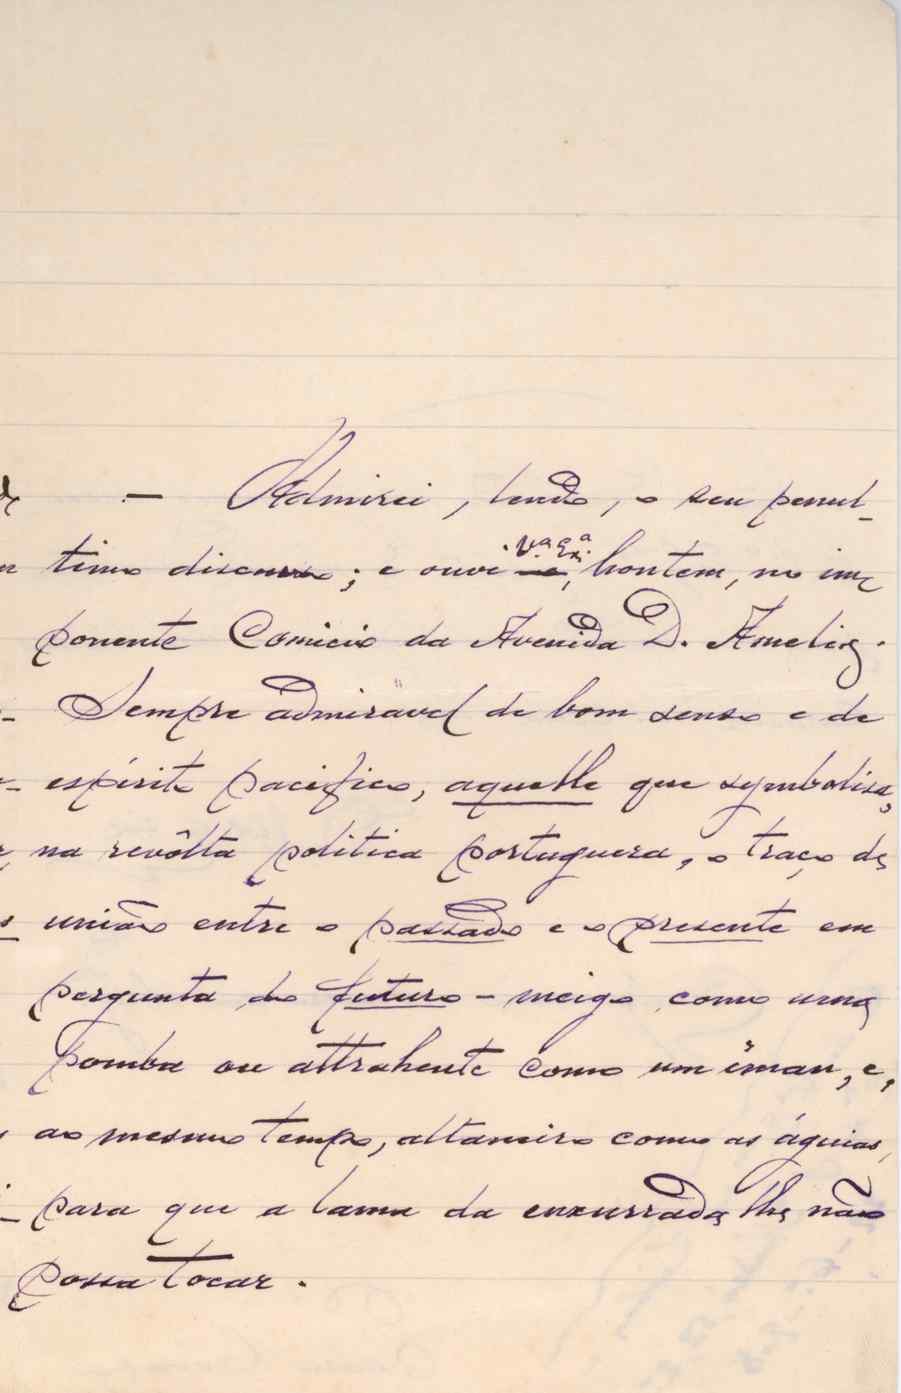 — Admirei, lendo, o seu penul-
timo discurso; e ouvi V.ª Ex.ª, hontem, no im-
ponente Comicio da Avenida D. Amelia.
Sempre admiravel de bom senso e de
espírito pacifico, aquelle que symbolisa,
na revôlta politica portugueza, o traço de
união entre o passado e o presente em
pergunta do futuro - meigo como uma
pomba ou attrahente como um íman, e,
ao mesmo tempo, altaneiro como as águias,
para que a lama da enxurrada lhe não
possa tocar.